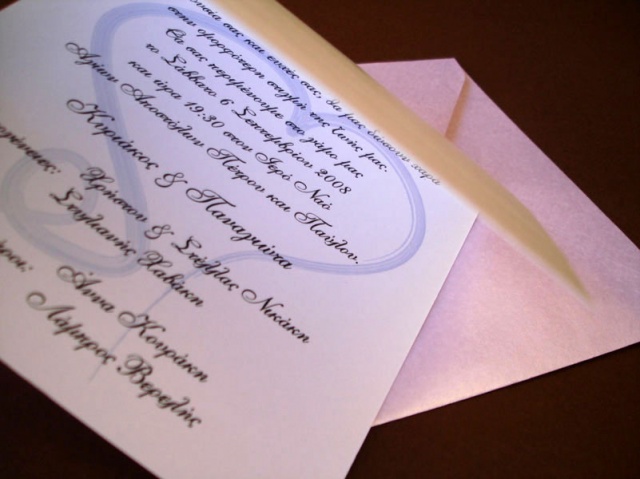 σας και εκτός σας, θα μας δώσουν χαρά
στην ομορφότερη στιγμή της ζωής μας.
Θα σας περιμένουμε στο γάμο μας
το Σάββατο 6 Σεπτεμβρίου 2008
και ώρα 19:30 στον Ιερό Ναό
Αγίων Αποστόλων Πέτρου και Παύλου.
Κυριάκος & Παναγιώτα
Χρήστου & Στέλλας Νικάκη
Στυλιανής Χαβάκη
Άννα Κουράκη
Λάμπρος Βερελής